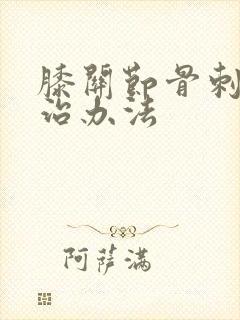 膝關節骨刺
治办法
阿萨满